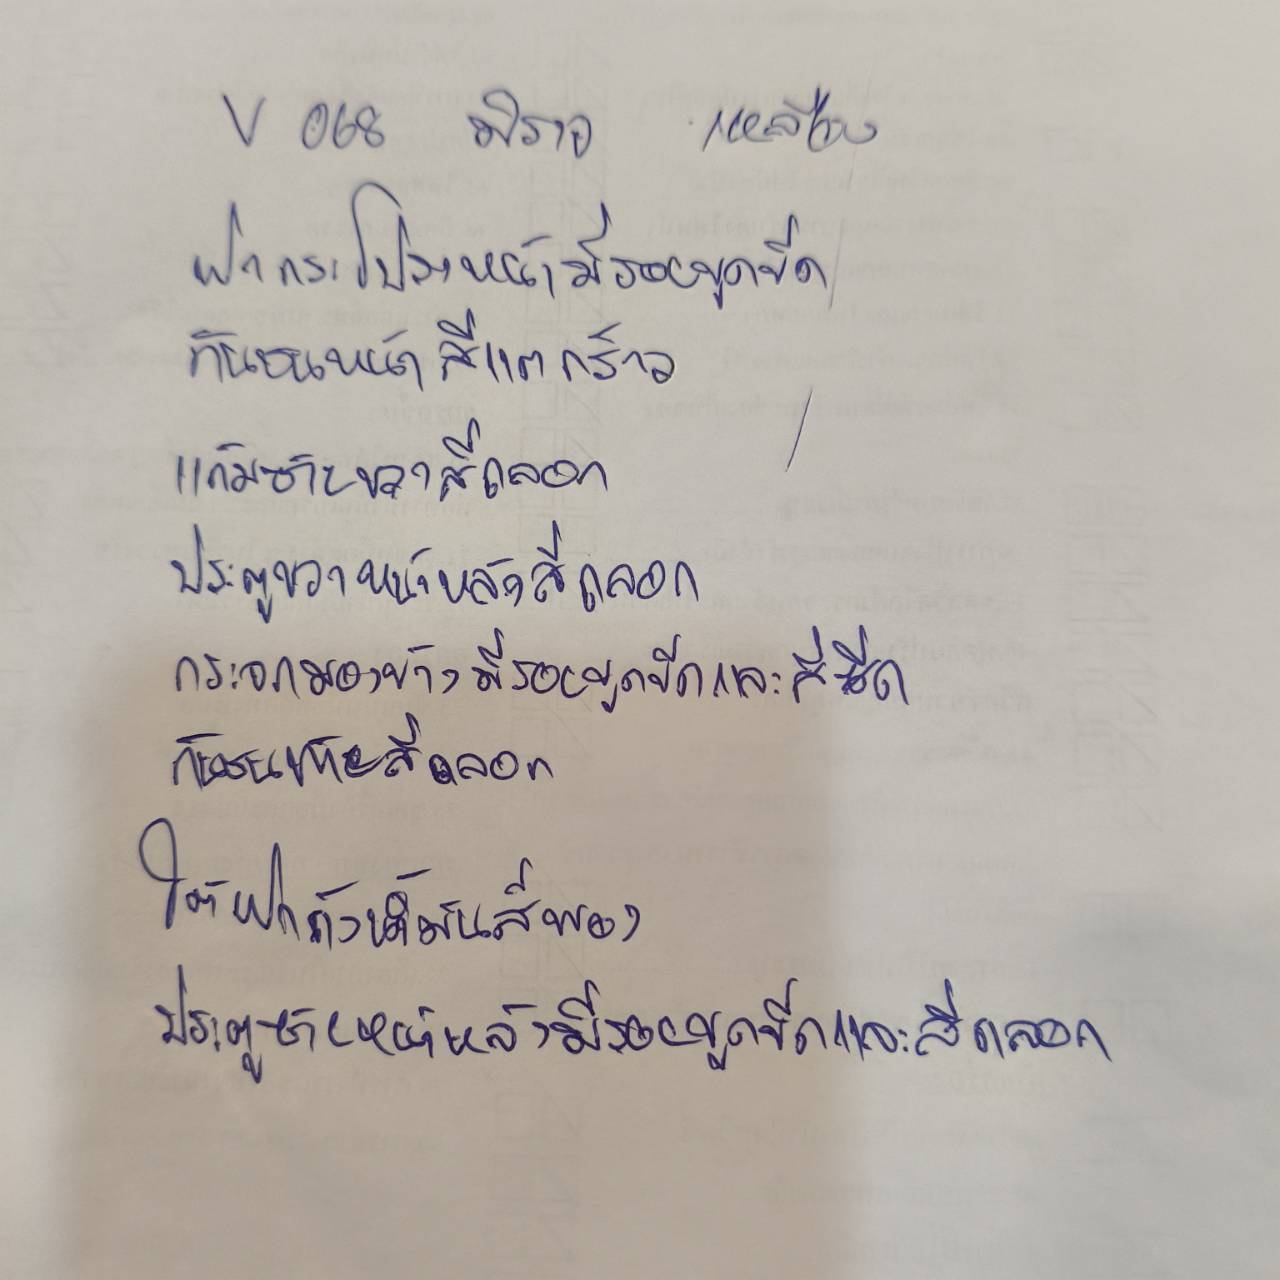 V 068 มิราจ เหลือง
ฝากระโปรงหน้ามีรอยขูดขีด
กันชนหน้าสีแตกร้าว
แก้มซ้ายขวาสีถลอก
ประตูขวาหน้าหลังสีถลอก
กระจกมองข้างมีรอยขูดขีดและสีซีด
กันชนท้ายสีถลอก
ใต้ฝาถังน้ำมันสีพอง
ประตูซ้ายหน้าหลังมีรอยขูดขีดและสีถลอก